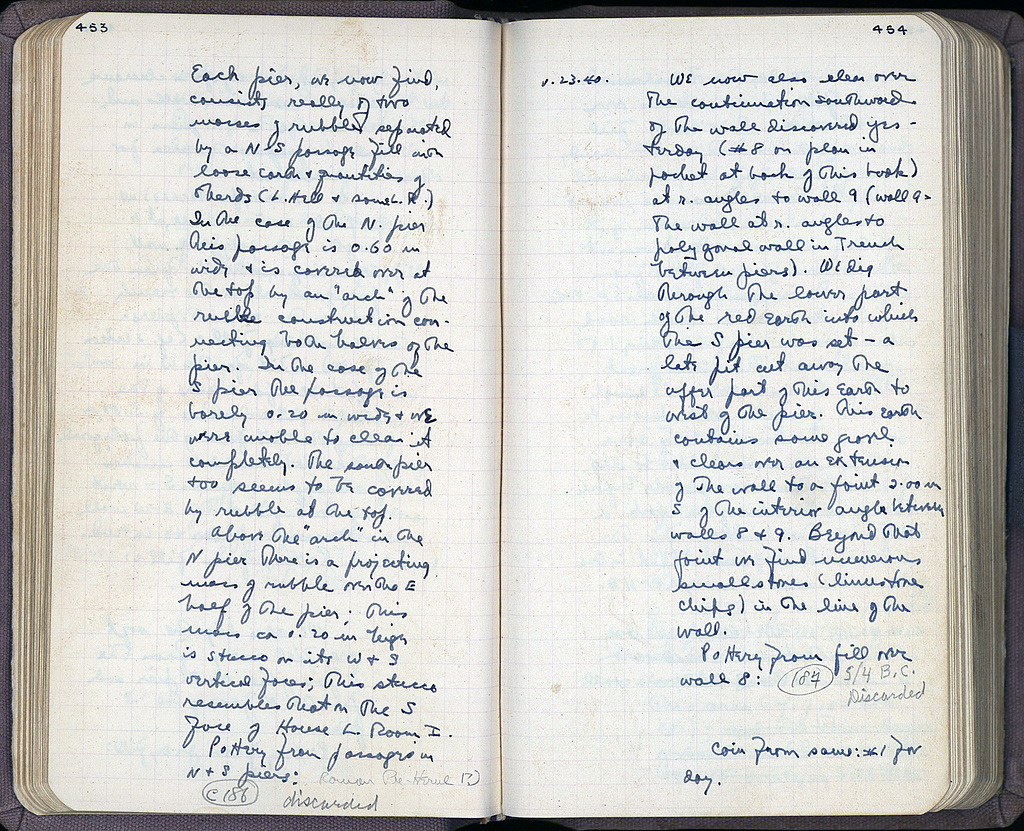 453
Each pier, we now find,
consists really of two
masses of rubble separated
by a N-S passage fill with
loose earth & quantities of
sherds (L. Hell & some L. R.)
In the case of the N. pier
this passage is 0.60 m
wide & is covered over at
the top by an "arch" of the
rubble construction con-
necting both halves of the
pier. In the case of the
S pier the passage is
barely 0.20 m wide & we
were unable to clean it
completely. The south pier
too seems to be covered
by rubble at the top.
Above the "arch" in the
N pier there is a projecting
mass of rubble over the E
half of the pier; this
mass ca 0.20 m high
is stucco on its W & S
vertical faces; this stucco
resembles that on the S
face of House L. Room I.
Pottery from passages in
N & S piers: Roman Pre-Herul (?)
C 186 discarded
454
V.23.40. We now also clean over
the continuation southward
of the wall discovered yes-
terday (#8 on plan in
pocket at back of this book)
at r. angles to wall 9 (wall 9 =
the wall at r. angles to
polygonal wall in Trench
between piers). We dig
through the lower part
of the red earth into which
the S pier was set – a
late pit cut away the
upper part of this earth to
west of the pier. This earth
contains some gravel
& clears over an extension
of the wall to a point 2.00 m
S of the interior angle between
walls 8 & 9. Beyond that
point we find numerous
small stones (limestone
chips) in the line of the
wall.
Pottery from fill over
wall 8: 187 5/4 B.C.
Discarded
Coin from same: #1 for
day.